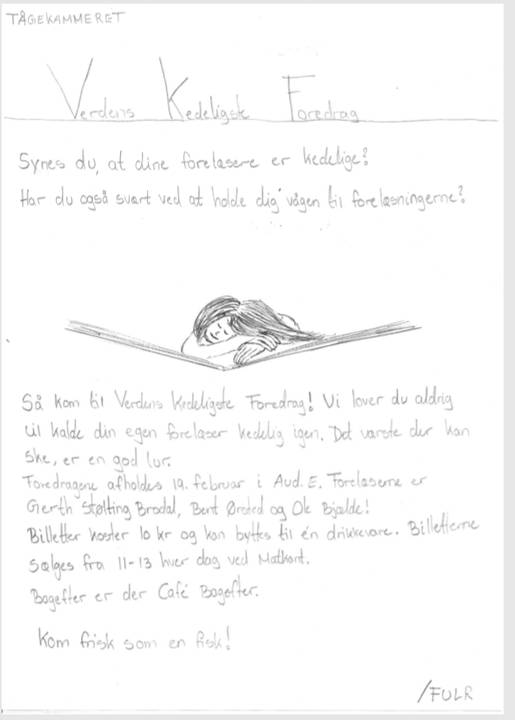 TÅGEKAMMERET
Verdens Kedeligste Foredrag
Synes du, at dine forelæsere er kedelige?
Har du også svært ved at holde dig vågen til forelæsningerne?
Så kom til Verdens Kedeligste Foredrag! Vi lover du aldrig
vil kalde din egen forelæser kedelig igen. Det værste der kan
ske, er en god lur.
Foredragene afholdes 19. februar i Aud. E. Forelæserne er
Gerth Stølting Brodal, Bent Ørsted og Ole Bjælde!
Billetter koster 10 kr og kan byttes til én drikkevare. Billetterne
sælges fra 11-13 hver dag ved Matkant.
Bagefter er der Café Bagefter.
Kom frisk som en fisk!
/FULR